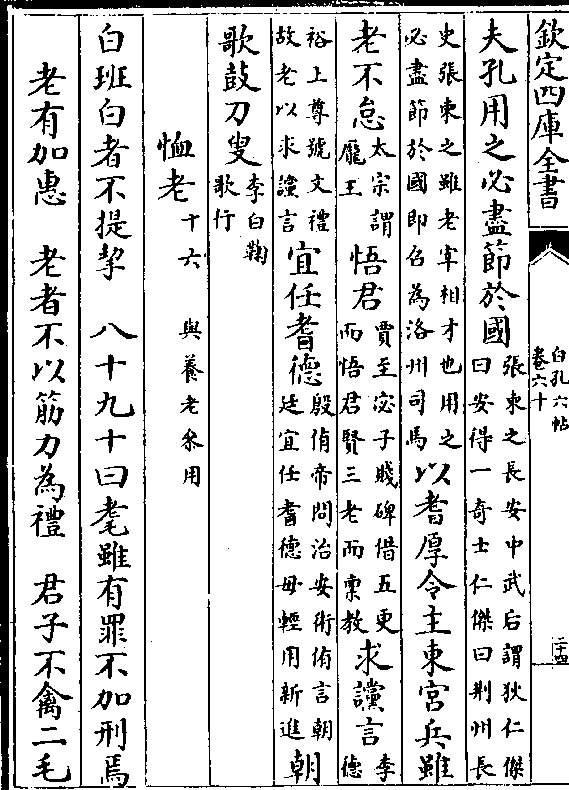 欽定四庫全書
白孔六帖
卷六十
二十四
夫孔用之必盡節於國張柬之長安中武后謂狄仁傑
曰安得一奇士仁傑曰荆州長
史張柬之雖老宰相才也用之
必盡節於國即召為洛州司馬以耆厚令主東宮兵雖
老不怠太宗謂
龐玉悟君賈至宓子賤碑借五更
而悟君賢三老而稟教求讜言李
德
裕上尊號文禮
故老以求讜言宜任耆德殷侑帝問治安術侑言朝
廷宜任耆德毋輕用新進朝
歌鼓刀叟李白鞠
歌行
恤老十六 與養老叅用
白班白者不提挈 八十九十曰耄雖有罪不加刑焉
老有加惠 老者不以筋力為禮 君子不禽二毛